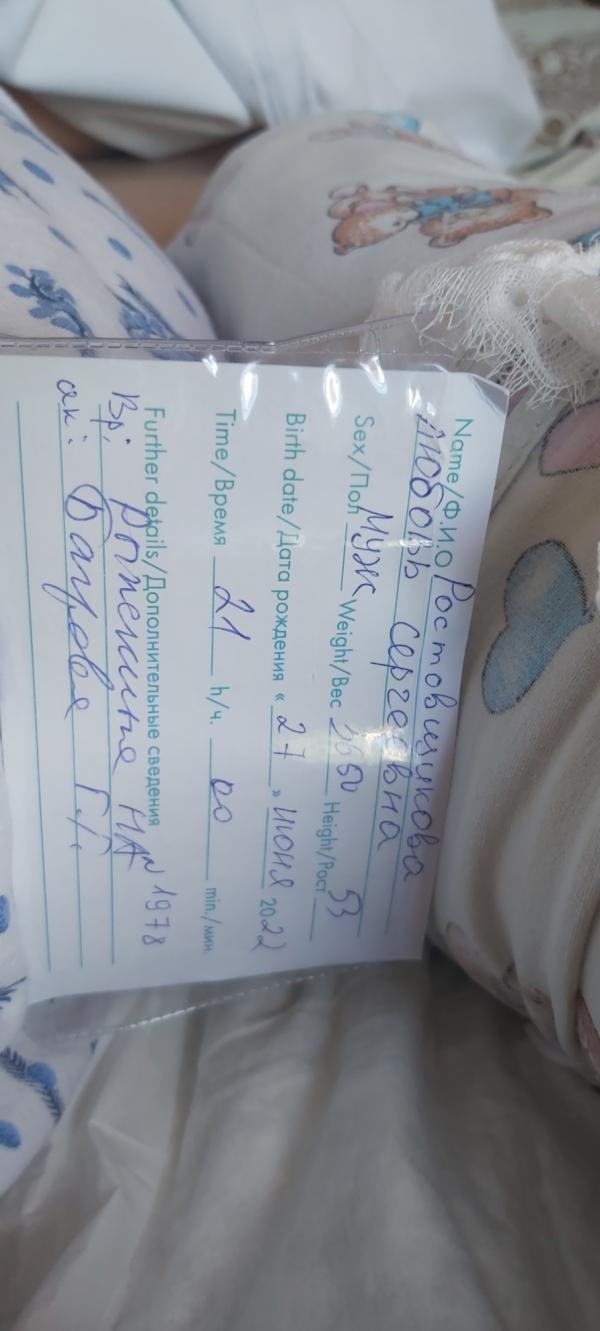 Name/Ф.И.О Ростовщикова
Любовь Сергеевна
Sex/Пол Муж Weight/Вес 3650 Height/Рост 53
Birth date/Дата рождения «27» июня 2022
Time/Время 21 h/ч. 00 min./мин
Further details/Дополнительные сведения
Вр: НА N 1978
ак: Багрова Г.Г.